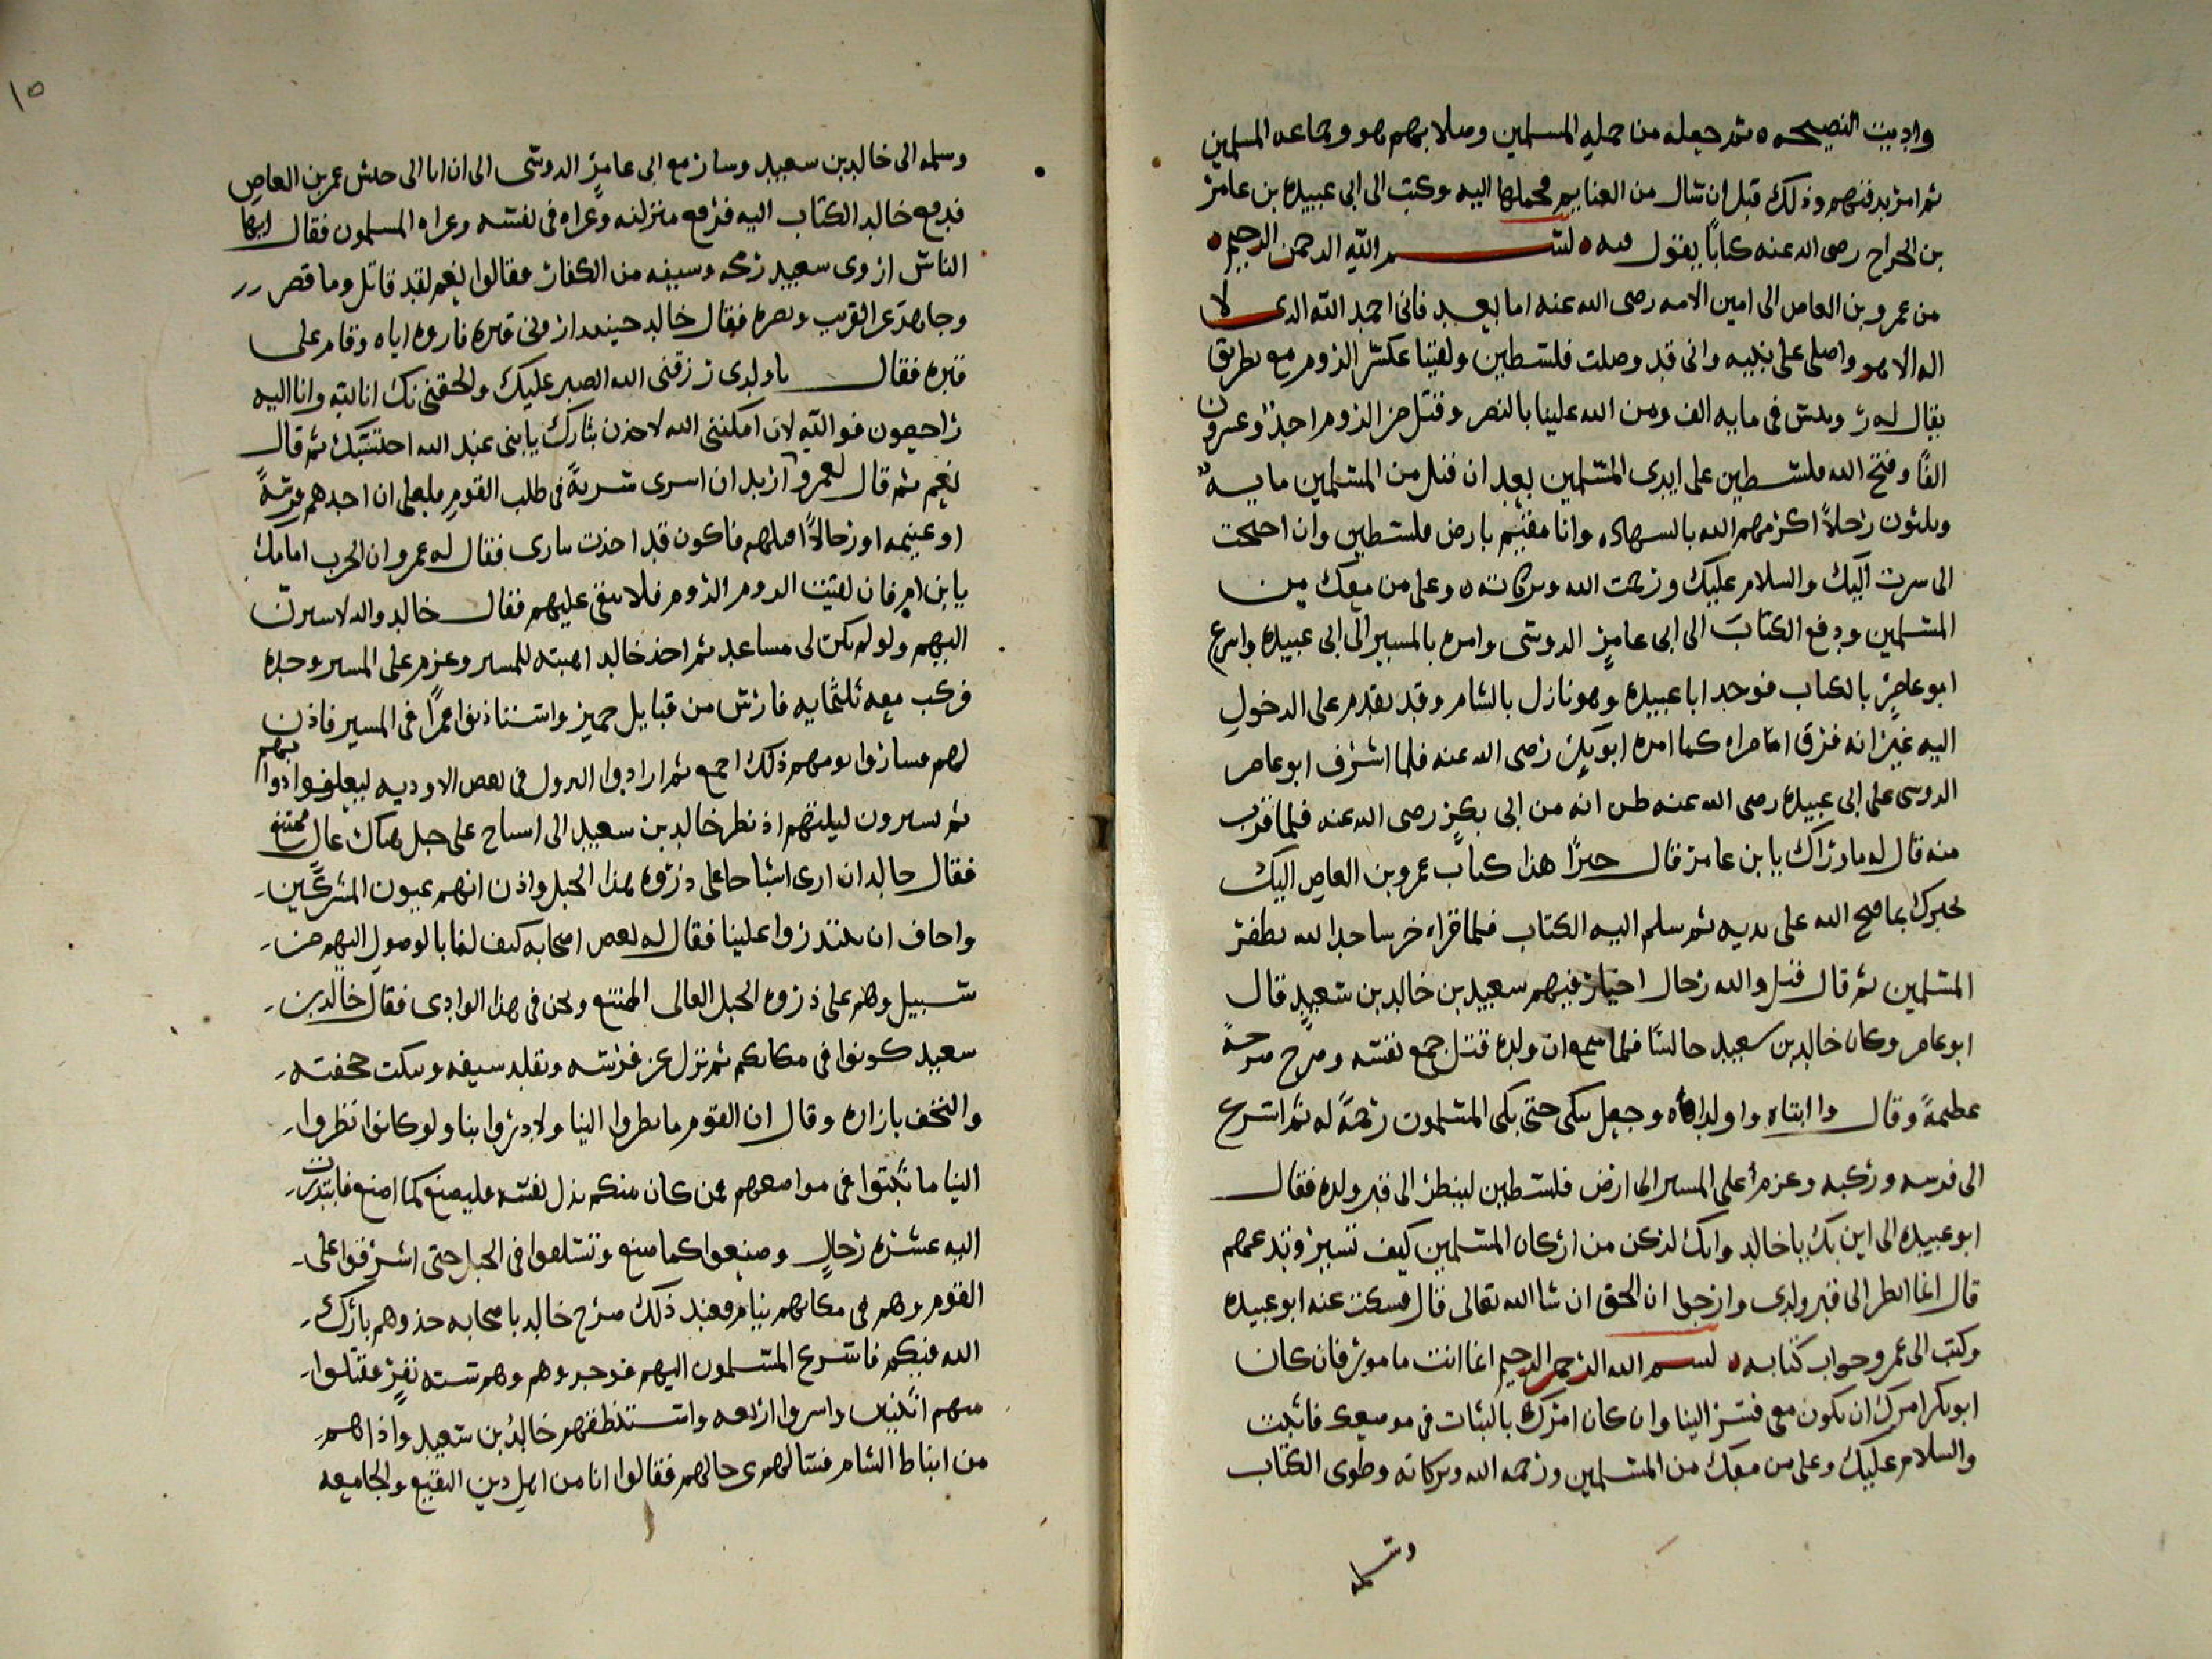 واديت النصيحه ثم جعله من جمله المسلمين وصلا بهم هو وجماعه المسلمين
ثم امر بدفنهم وذلك قبل ان شال من الغنايم محملها اليه وكتب الى ابى عبيده بن عامر
بن الجراح رضى الله عنه كتابًا يقول فيه بسم الله الرحمن الرحيم
من عمرو بن العاص الى امين الامه رضى الله عنه اما بعد فانى احمد الله الدى لا
اله الا هو واصلى على نبيه وانى قد وصلت فلسطين ولقينا عسكر الروم مع بطريق
يقال له روبيس فى مايه الف ومن الله علينا بالنصر وقتل من الروم احد وعشرون
الفًا وفتح الله فلسطين على ايدى المسلمين بعد ان قتل من المسلمين مايه
وثلثون رجلاً اكرمهم الله بالسهاده وانا مقيم بارض فلسطين وان احتجت
الى سرت اليك والسلام عليك ورحمت الله وبركاته وعلى من معك من
المسلمين ودفع الكتاب الى ابى عامر الدوسى وامره بالمسير الى ابى عبيده واسرع
ابو عامر بالكتاب فوجد ابا عبيده وهو نازل بالشام وقد تقدم على الدخول
اليه غير انه فرق امامراه كما امره ابو بكر رضى الله عنه فلما اشرف ابو عامر
الدوسى على ابى عبيده رضى الله عنه ظن انه من ابى بكر رضى الله عنه فلما قرب
منه قال له ما وراك يا بن عامر قال خيرًا هذا كتاب عمرو بن العاص اليك
يخبرك بما فتح الله على يديه ثم سلم اليه الكتاب فلما قراه خر ساجدا لله بظفر
المسلمين ثم قال قتل والله رجال اخيار فيهم سعيد بن خالد بن سعيد قال
ابو عامر وكان خالد بن سعيد جالسًا فلما سمع ان ولده قتل جمع نفسه وصرخ صرخة
عظيمة وقال وا ابناه وا ولداه وجعل يبكى حتى بكى المسلمون رحمة له ثم اسرع
الى فرسه وركبه وعزم على المسير الى ارض فلسطين لينظر الى قبر ولده فقال
ابو عبيده الى اين بك يا خالد وانك لركن من اركان المسلمين كيف تسير وتدعهم
قال انما انظر الى قبر ولدى وارجوا ان الحق ان شا الله تعالى قال فسكت عنه ابو عبيده
وكتب الى عمرو جواب كتابه بسم الله الرحمن الرحيم انما انت مامور فان كان
ابو بكر امرك ان تكون معى فسر الينا وان كان امرك بالثبات فى موضعك فاثبت
والسلام عليك وعلى من معك من المسلمين ورحمه الله وبركاته وطوى الكتاب
وسلمه
١٥
وسلمه الى خالد بن سعيد وسار مع ابى عامر الدوسى الى ان اتا الى جيش عمر بن العاص
فدفع خالد الكتاب اليه فرفع منزلته وعزاه فى نفسه وعزاه المسلمون فقال ايها
الناس اروى سعيد رمحه وسيفه من الكفار فقالوا نعم لقد قاتل وما قصر
وجاهد عن القريب ونصره فقال خالد حينيد ارونى قبره فاروه اياه وقام على
قبره فقال يا ولدى رزقنى الله الصبر عليك والحقنى بك انا لله وانا اليه
راجعون فوالله لان امكننى الله لاخذن بثارك يا بنى عند الله احتسبتك ثم قال
نعم ثم قال لعمرو اريد ان اسرى سرية فى طلب القوم فلعلى ان اجدهم فرسة
او غنيمه او رجالاً اقتلهم فاكون قد اخذت بثارى فقال له عمرو ان الحرب امامك
يا بن ام فان لقيت الروم الروم فلا تبقى عليهم فقال خالد والله لاسيرن
اليهم ولو لم يكن لى مساعد ثم اخذ خالد اهبته للمسير وعزم على المسير وحده
فركب معه ثلثمايه فارس من قبايل حمير واستاذنوا عمرًا فى المسير فاذن
لهم فساروا يومهم ذلك اجمع ثم ارادوا النزول فى بعض الاوديه ليعلفوا دوابهم
ثم يسيرون ليلتهم اذ نظر خالد بن سعيد الى اشباح على جبل هناك عال ممتنع
فقال خالد انى ارى اشباحا على ذروه هذا الجبل واذن انهم عيون المشركين
واخاف ان ينذروا علينا فقال له بعض اصحابه كيف لنا بالوصول اليهم من
سبيل وهم على ذروه الجبل العالى الممتنع ونحن فى هذا الوادى فقال خالد بن
سعيد كونوا فى مكانكم ثم نزل عن فرسه وتقلد سيفه وتنكب حجفته
والتحف بازاره وقال ان القوم ما نظروا الينا ولا دروا بنا ولو كانوا نظروا
الينا ما ثبتوا فى مواضعهم فمن كان منكم بذل نفسه فليصنع كما اصنع فابتدرت
اليه عشره رجال وصنعوا كما صنع وتسلقوا فى الجبل حتى اشرفوا على
القوم وهم فى مكانهم نيام فعند ذلك صرخ خالد باصحابه خذوهم بارك
الله فيكم فاسرع المسلمون اليهم فوجدوهم وهم سته نفر فقتلوا
منهم اثنين واسروا اربعه واستنطقهم خالد بن سعيد واذا هم
من انباط الشام فسالهم عن حالهم فقالوا انا من اهل دير البقيع والجامعه